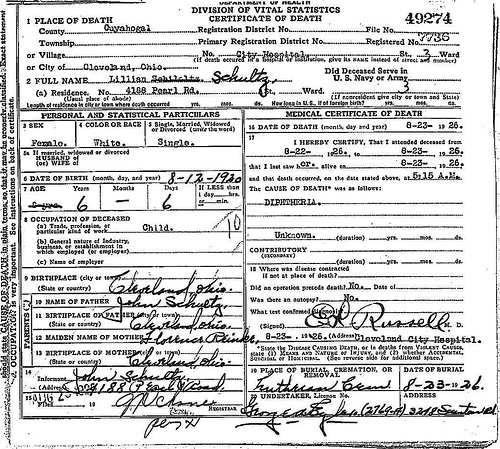 DEPARTMENT OF HEALTH
DIVISION OF VITAL STATISTICS
CERTIFICATE OF DEATH
49274
1 PLACE OF DEATH
County Cuyahoga1 Registration District No. File No.
Township Primary Registration District No. Registered No. 7736
or Village No. City Hospital St., 3 Ward
(If death occurred in a hospital or institution, give its NAME instead of street and number)
or City of Cleveland, Ohio.
2 FULL NAME Lillian Schultz Schultz Did Deceased Serve in U. S. Navy or Army
(a) Residence. No. 4188 Pearl Rd. St., Ward. 3
(Usual place of abode) (If nonresident give city or town and State)
Length of residence in city or town where death occurred yrs. mos. ds. How long in U. S., if of foreign birth? yrs. mos. ds.
PERSONAL AND STATISTICAL PARTICULARS
3 SEX 4 COLOR OR RACE 5 Single, Married, Widowed or Divorced (write the word)
Female. White. Single.
5a If married, widowed or divorced
HUSBAND of
(or) WIFE of
6 DATE OF BIRTH (month, day, and year) 8-12-1920
7 AGE Years Months Days If LESS than 1 day, hrs. or min.
6 - 6
8 OCCUPATION OF DECEASED
(a) Trade, profession, or particular kind of work Child.
(b) General nature of Industry, business, or establishment in which employed (or employer)
(c) Name of employer
10
9 BIRTHPLACE (city or town) Cleveland, Ohio.
(State or country)
PARENTS
10 NAME OF FATHER John Schultz,
11 BIRTHPLACE OF FATHER (city or town) Cleveland, Ohio.
(State or country)
12 MAIDEN NAME OF MOTHER Florence
13 BIRTHPLACE OF MOTHER (city or town) Cleveland, Ohio.
(State or country)
14 Informant John Schultz
(Address)
15 Filed 19 REGISTRAR
MEDICAL CERTIFICATE OF DEATH
16 DATE OF DEATH (month, day, and year) 8-23-1926.
17
I HEREBY CERTIFY, That I attended deceased from
8-22- 1926. to 8-23- 1926.
that I last saw her alive on 8-23- 1926.
and that death occurred, on the date stated above, at 5:15 A.M.
The CAUSE OF DEATH* was as follows:
DIPHTHERIA.
Unknown. (duration) yrs. mos. ds.
CONTRIBUTORY
(SECONDARY)
(duration) yrs. mos. ds.
18 Where was disease contracted
if not at place of death?
Did an operation precede death? No. Date of
Was there an autopsy? No.
What test confirmed diagnosis?
(Signed) Russell M. D.
8-23- 1926 (Address) Cleveland City Hospital.
*State the DISEASE CAUSING DEATH, or in deaths from VIOLENT CAUSES, state (1) MEANS AND NATURE OF INJURY, and (2) whether ACCIDENTAL, SUICIDAL, or HOMICIDAL. (See reverse side for additional space.)
19 PLACE OF BURIAL, CREMATION, OR REMOVAL DATE OF BURIAL
Lutheran Cem 8-23-1926.
20 UNDERTAKER, License No. ADDRESS
(2769A) 3248 Scranton Rd